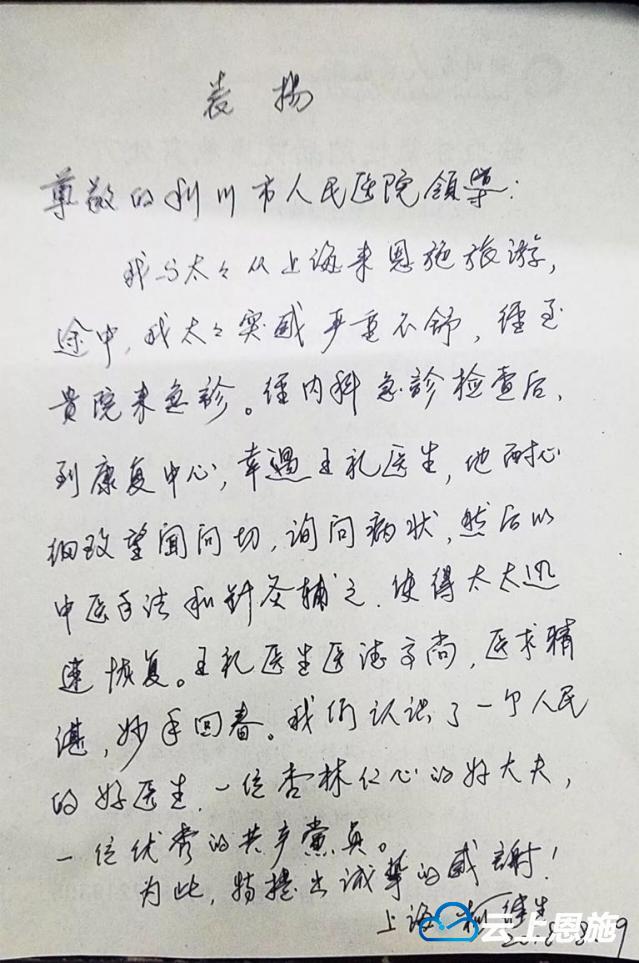 表扬
尊敬的利川市人民医院领导：
我与太々从上海来恩施旅游，
途中，我太々突感严重不舒，经至
贵院来急診。经内科急診检查后，
到康复中心，幸遇王礼医生，他耐心
细致望闻问切，询问病状，然后以
中医手法和针灸辅之．使得太太迅
速恢复。王礼医生医德高尚，医术精
湛，妙手回春。我们认识了一个人民
的好医生．一位杏林仁心的好大夫，
一位优秀的共产党员。
为此，特提出诚挚的感謝！
上海
云上恩施